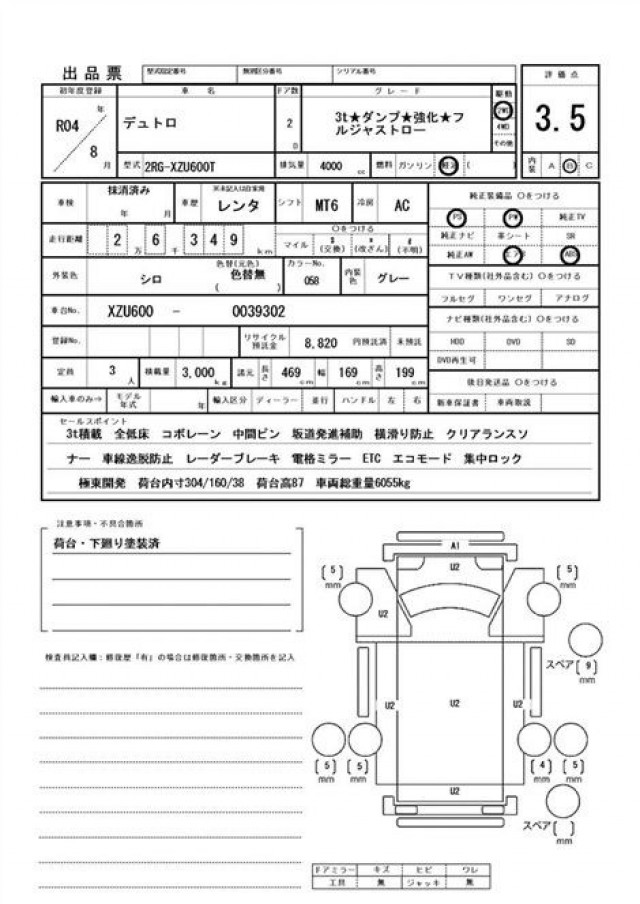 出品票 型式指定番号 類別区分番号 シリアル番号 評価点
初年度登録 車名 ドア数 グレード 駆動
R04 年 8 月 デュトロ 2 D 3t★ダンプ★強化★フルジャストロー 2WD 4WD その他 3.5
型式 2RG-XZU600T 排気量 4000 cc 燃料 ガソリン 軽油 ( ) 内装 A B C
車検 抹消済み 年 月 車歴 ※未記入は自家用 レンタ シフト MT6 冷房 AC 純正装備品 〇をつける
走行距離 2 万 6 千 3 4 9 km 〇をつける マイル $ (交換) * (改ざん) # (不明) PS PW 純正TV
純正ナビ 革シート SR
外装色 シロ 色替(元色) 色替無 ( ) カラーNo. 058 内装色 グレー 純正AW エアB ABS
TV種類(社外品含む) 〇をつける
車台No. XZU600 - 0039302 フルセグ ワンセグ アナログ
ナビ種類(社外品含む) 〇をつける
登録No. リサイクル預託金 8,820 円預託済 未預託 HDD DVD SD
DVD再生可
定員 3 人 積載量 3,000 kg 諸元 長さ 469 cm 幅 169 cm 高さ 199 cm 後日発送品 〇をつける
輸入車のみ⇒ モデル年式 年 輸入区分 ディーラー 並行 ハンドル 左 右 新車保証書 車両取説
セールスポイント
3t積載 全低床 コボレーン 中間ピン 坂道発進補助 横滑り防止 クリアランスソ
ナー 車線逸脱防止 レーダーブレーキ 電格ミラー ETC エコモード 集中ロック
極東開発 荷台内寸304/160/38 荷台高87 車両総重量6055kg
注意事項・不具合箇所
荷台・下廻り塗装済
検査員記入欄:修復歴「有」の場合は修復箇所・交換箇所を記入
A1
U2
(5) mm (5) mm
U2
スペア (9) mm
U2 U2 U2
(5) mm (5) mm (4) mm (5) mm
U2
スペア ( ) mm
ドアミラー キズ ヒビ ワレ
工具 無 ジャッキ 無